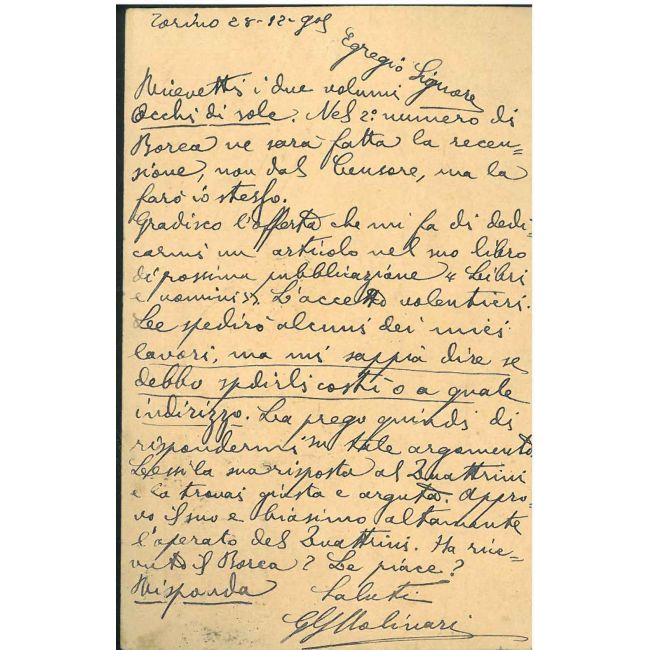 Torino 28-12-905
Egregio Signore
Ricevetti i due volumi
Occhi di sole. Nel 2º numero di
Borea ne sarà fatta la recen=
sione, non dal Censore, ma la
farò io stesso.
Gradisco l'offerta che mi fa di dedi=
carmi un articolo nel suo libro
di prossima pubblicazione "Libri
e uomini". L'accetto volentieri.
Le spedirò alcuni dei miei
lavori, ma mi sappia dire se
debbo spedirli costì o a quale
indirizzo. La prego quindi di
rispondermi su tale argomento.
Lessi la sua risposta al Quattrini
e la trovai giusta e arguta. Appro=
vo il suo e biasimo altamente
l'operato del Quattrini. Ha rice=
vuto il Borea? Le piace?
Risponda
Saluti
Molinari